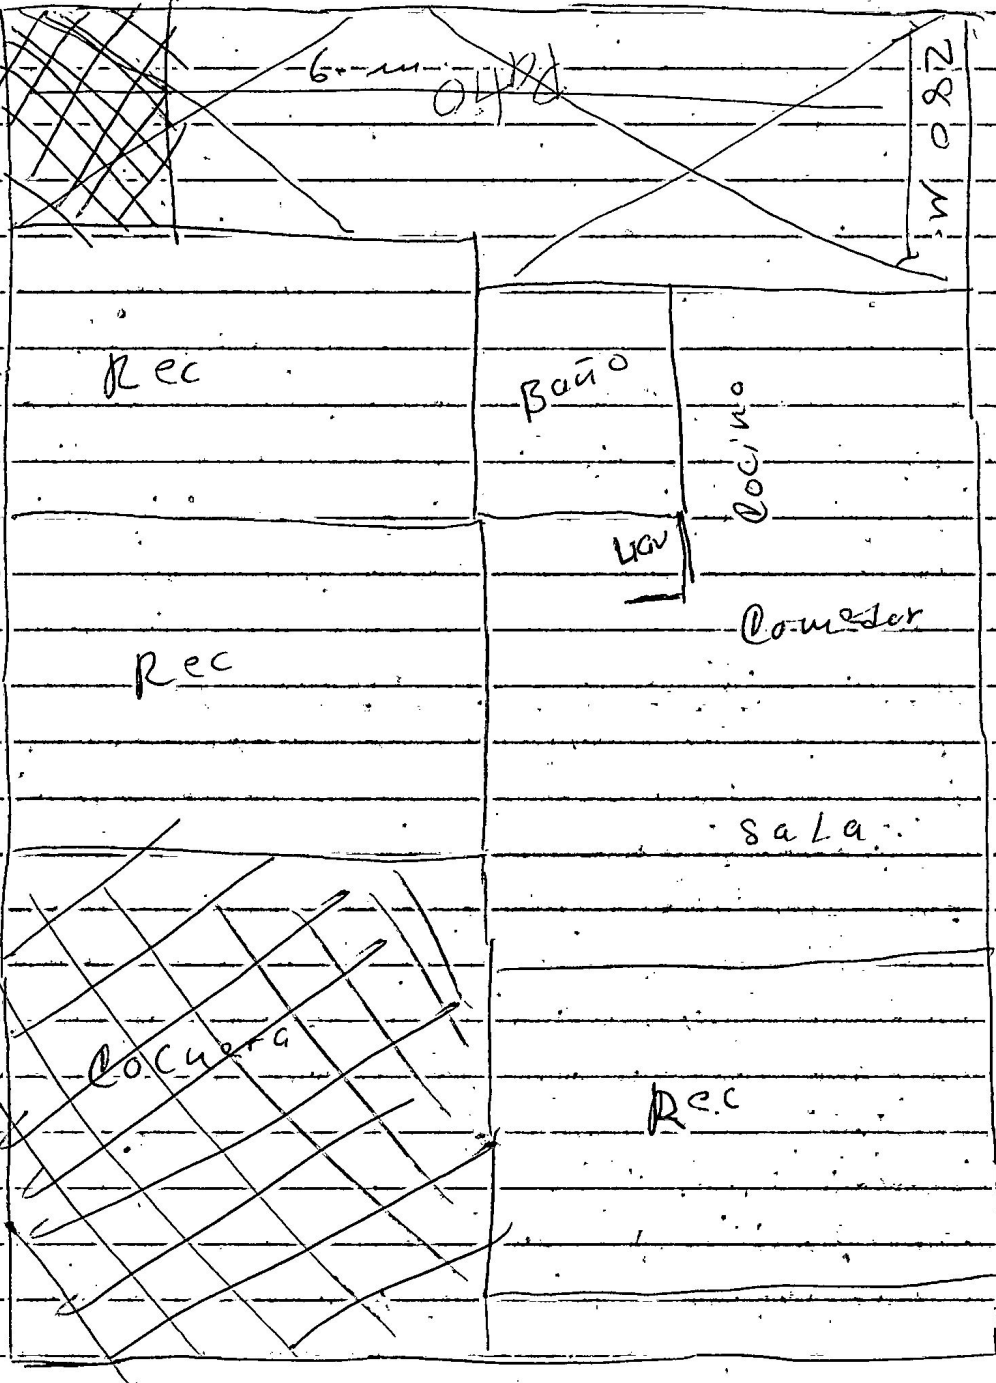 6. m.
Patio
2.80 M.
Rec
Baño
Cocina
Lav
Comedor
Rec
sala
Cochera
Rec